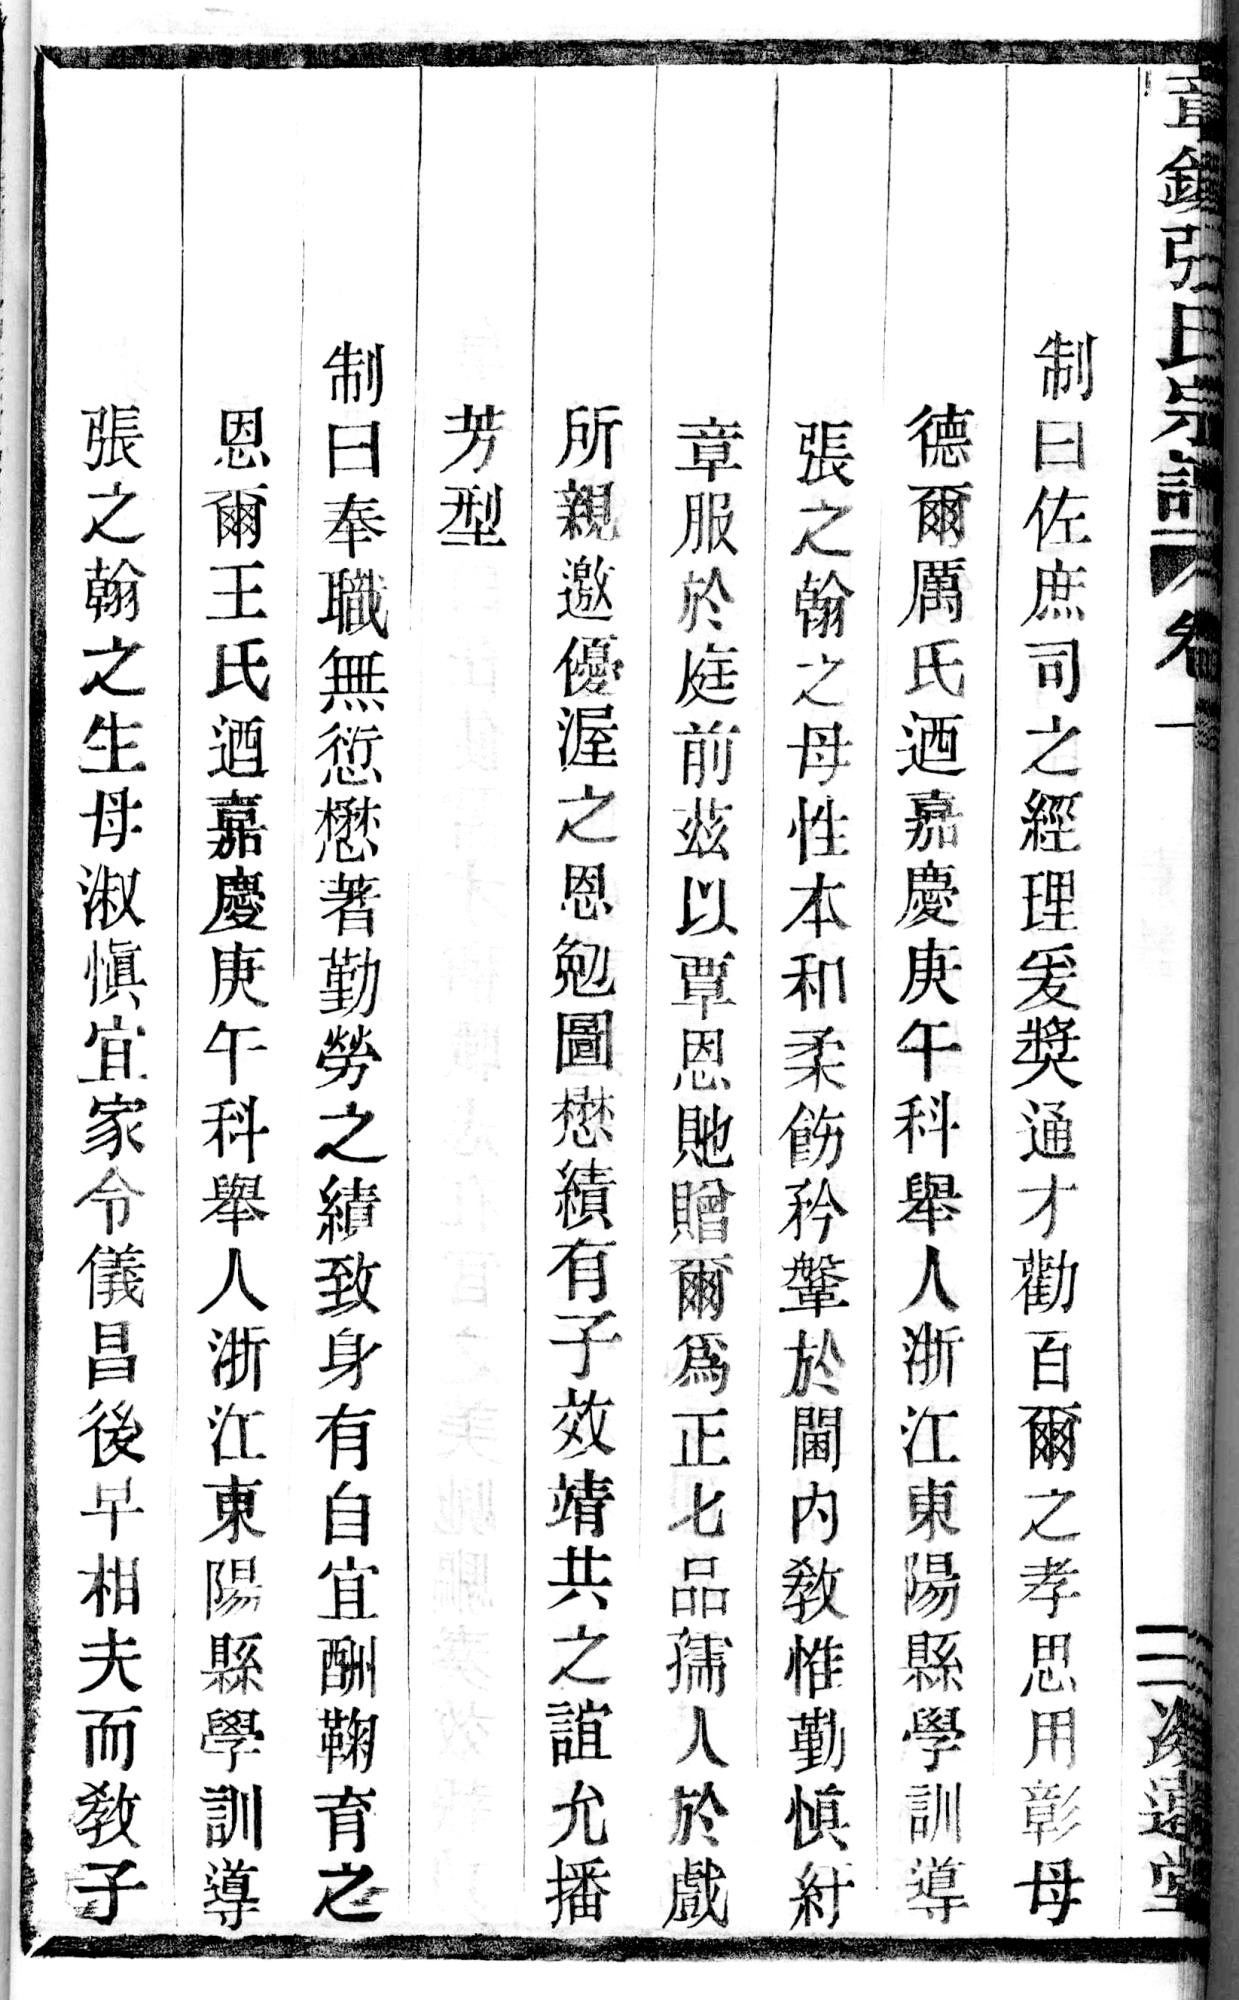 張氏宗譜 卷一
制曰佐庶司之經理爰奬通才勸百爾之孝思用彰母
德爾厲氏迺嘉慶庚午科舉人浙江東陽縣學訓導
張之翰之母性本和柔飭矜鞶於閫内敎惟勤愼紆
章服於庭前茲以覃恩貤贈爾爲正七品孺人於戲
所親邀優渥之恩勉圖懋績有子效靖共之誼允播
芳型
制曰奉職無愆懋著勤勞之績致身有自宜酬鞠育之
恩爾王氏迺嘉慶庚午科舉人浙江東陽縣學訓導
張之翰之生母淑愼宜家令儀昌後早相夫而敎子